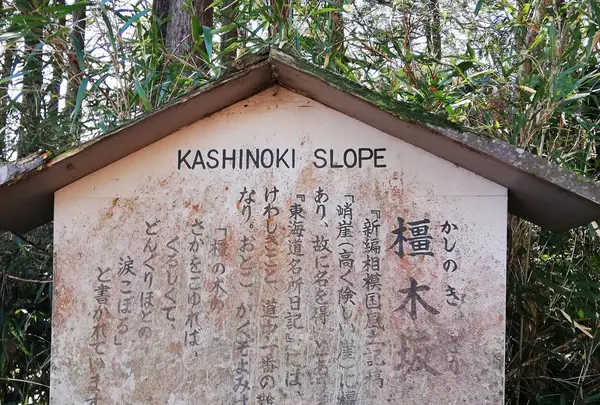 KASHINOKI SLOPE
かしのき
橿木坂
『新編相模国風土記稿
「峭崖(高く険しい崖)に橿
あり、故に名を得」とあり
『東海道名所日記』には、
けわしきこと 道中一番の難
なり。おとこ かくぞよみけ
「橿の木の
さかをこゆれば、
くるしくて、
どんぐりほどの
涙こぼる」
と書かれています